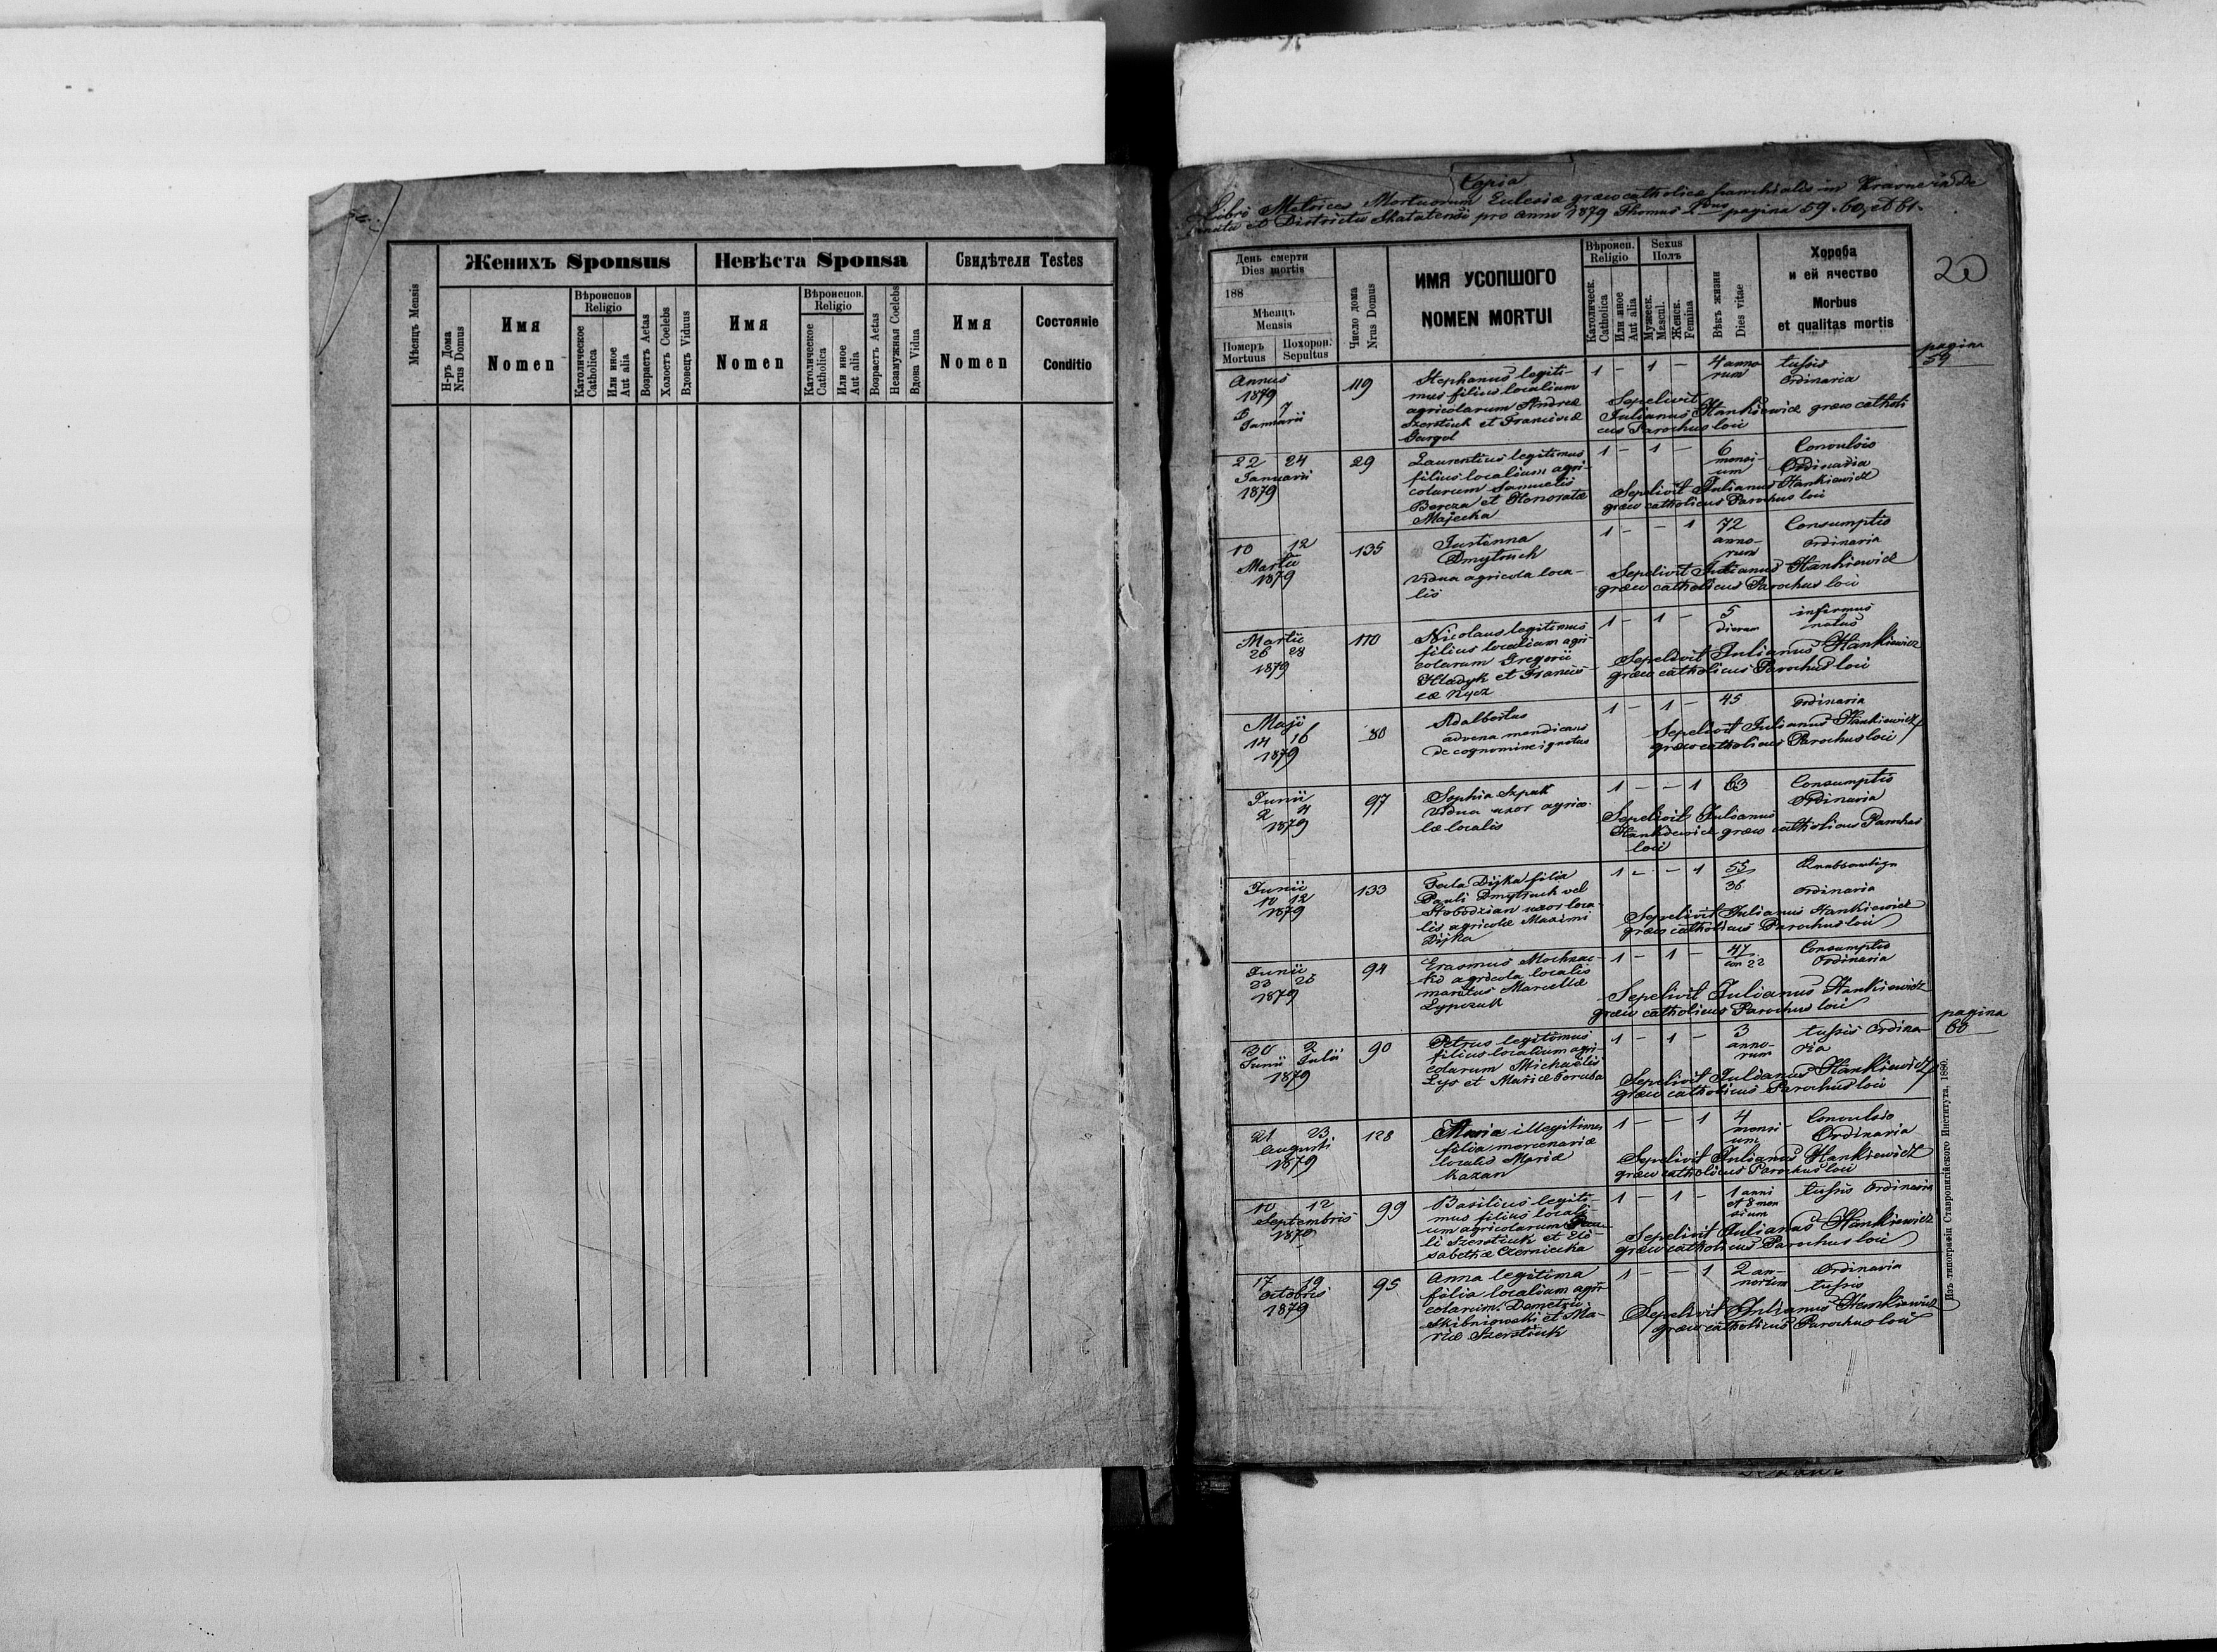 Женихъ Sponsus
Невѣста Sponsa
Свидѣтели Testes
Мѣсяцъ Mensis
Н-ръ Дома
Nrus Domus
Имя
Nomen
Вѣроиспов
Religio
Католическое
Catholica
Или иное
Aut alia
Возрастъ Aetas
Холостъ Coelebs
Вдовецъ Viduus
Имя
Nomen
Вѣроиспов.
Religio
Католическое
Catholica
Или иное
Aut alia
Возрастъ Aetas
Незамужная Coelebs
Вдова Vidua
Имя
Nomen
Состоянiе
Conditio
Copia
Libri Metrices Mortuorum Eclesiæ græco catholicæ parochialis in
et Districtu Skalatensi pro anno 1879 Thomus pagina 59. 60 et 61.
20
День смерти
Dies mortis
188
Мѣсяцъ
Mensis
Померъ
Mortuus
Похорон.
Sepultus
Число дома
Nrus Domus
ИМЯ УСОПШОГО
NOMEN MORTUI
Вѣроисп.
Religio
Католическ.
Catholica
Или иное
Aut alia
Sexus
Полъ
Мужеск.
Mascul.
Женск.
Femina
Вѣкъ жизни
Dies vitae
Хороба
и ей ячество
Morbus
et qualitas mortis
pagina
59
Annus
1879
5 7
Januarii
119
Stephanus legiti-
mus filius localium
agricolarum Andreæ
Szerstiuk et Franciscæ
Gargol
1 - 1 -
4 anno-
rum
tussis
Ordinaria
Sepelivit
Julianus Hankiewicz græco catholi
cus Parochus loci
22 24
Januarii
1879
29
Laurentius legitimus
filius localium agri-
colarum Samuelis
Borcza et Honoratæ
Majecka
1 - 1 -
6
mensi-
um
Convulsio
Ordinaria
Sepelivit Julianus Hankiewicz
græco catholicus Parochus loci
10 12
Martii
1879
135
Justinna
Dmytruch
vidua agricola loca-
lis
1 - - 1
72
anno-
rum
Consumptio
ordinaria
Sepelivit Julianus Hankiewicz
græco catholicus Parochus loci
Martii
26 28
1879
170
Nicolaus legitimus
filius localium agri
colarum Gregorii
Hladyk et Francis-
cæ Kycz
1 - 1 -
5
dierum
infirmus
natus
Sepelivit Julianus Hankiewicz
græco catholicus Parochus loci
Maji
14 16
1879
80
Adalbertus
advena mendicans
de cognomine ignotus
1 - 1 -
45
Ordinaria
Sepelivit Julianus Hankiewicz
græco catholicus Parochus loci
Junii
2 4
1879
97
Sophia Szpak
vidua uxor agrico-
læ localis
1 - - 1
63
Consumptio
Ordinaria
Sepelivit Julianus
Hankiewicz græco catholicus Parochus
loci
Junii
10 12
1879
133
Tecla Dijka filia
Pauli Dmytruch vel
Slobodzian uxor loca-
lis agricolæ Maximi
Dijka
1 - - 1
55
36
ordinaria
Sepelivit Julianus Hankiewicz
græco catholicus Parochus loci
Junii
23 25
1879
94
Erasmus Mochnac-
ki agricola localis
maritus Marcellæ
Lypczuk
1 - 1 -
47
con 22
Consumptio
Ordinaria
Sepelivit Julianus Hankiewicz
græco catholicus Parochus loci
pagina
60
30 2
Junii Julii
1879
90
Petrus legitimus
filius localium agri-
colarum Michaëlis
Lys et Mariæ Boruba
1 - 1 -
3
anno-
rum
tussis Ordina-
ria
Sepelivit Julianus Hankiewicz
græco catholicus Parochus loci
21 23
Augusti
1879
128
Maria illegitima
filia mercenariæ
localis Mariæ
Kazan
1 - - 1
4
mensi
um
Convulsio
Ordinaria
Sepelivit Julianus Hankiewicz
græco catholicus Parochus loci
10 12
Septembris
1879
99
Basilius legiti-
mus filius locali-
um agricolarum Pau-
li Szerstiuk et Eli-
sabethæ Czerniecka
1 - 1 -
1 anni
et 8 men
sium
tussis Ordinaria
Sepelivit Julianus Hankiewicz
græco catholicus Parochus loci
17 19
Octobris
1879
95
Anna legitima
filia localium agri-
colarum Demetrii
Skibniowski et Ma-
riæ Szerstiuk
1 - - 1
2 an-
norum
Ordinaria
tussis
Sepelivit Julianus Hankiewicz
græco catholicus Parochus loci
Изъ типографiи Ставропигiйского Института, 1880.